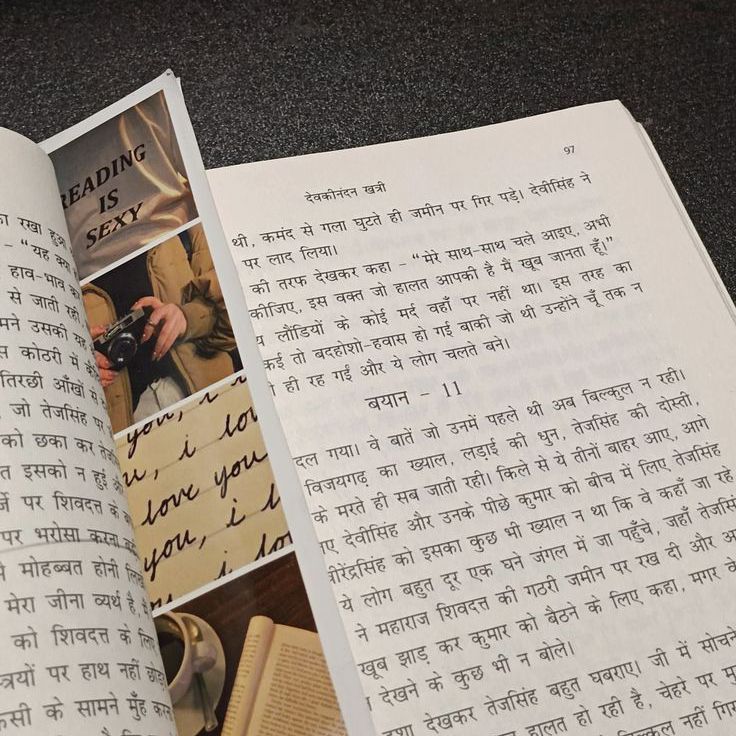 रखा हुआ
– “यह क्या
हाव-भाव
से जाती रही
मने उसकी यह
स कोठरी में
तिरछी आँखों से
जो तेजसिंह पर
को छका कर
त इसको न हुई
र्जे पर शिवदत्त के
पर भरोसा करना
मोहब्बत होनी
मेरा जीना व्यर्थ है
को शिवदत्त के
त्रयों पर हाथ नहीं
सी के सामने मुँह
READING
IS
SEXY
you, i
u, i lo
love you
you, i l
i lo
97
देवकीनंदन खत्री
थी, कमंद से गला घुटते ही जमीन पर गिर पड़े। देवीसिंह ने
पर लाद लिया।
की तरफ देखकर कहा – “मेरे साथ-साथ चले आइए, अभी
कीजिए, इस वक्त जो हालत आपकी है मैं खूब जानता हूँ।”
य लौंडियों के कोई मर्द वहाँ पर नहीं था। इस तरह का
कई तो बदहोशो-हवास हो गई बाकी जो थी उन्होंने चूँ तक न
ही रह गईं और ये लोग चलते बने।
बयान – 11
दल गया। वे बातें जो उनमें पहले थी अब बिल्कुल न रही।
विजयगढ़ का ख्याल, लड़ाई की धुन, तेजसिंह की दोस्ती,
के मरते ही सब जाती रही। किले से ये तीनों बाहर आए, आगे
ए देवीसिंह और उनके पीछे कुमार को बीच में लिए तेजसिंह
वीरेंद्रसिंह को इसका कुछ भी ख्याल न था कि वे कहाँ जा रहे
ये लोग बहुत दूर एक घने जंगल में जा पहुँचे, जहाँ तेजसिं
ने महाराज शिवदत्त की गठरी जमीन पर रख दी और अ
खूब झाड़ कर कुमार को बैठने के लिए कहा, मगर वे
देखने के कुछ भी न बोले।
दशा देखकर तेजसिंह बहुत घबराए। जी में सोचने
हालत हो रही है, चेहरे पर मु
बिल्कुल नहीं गिर